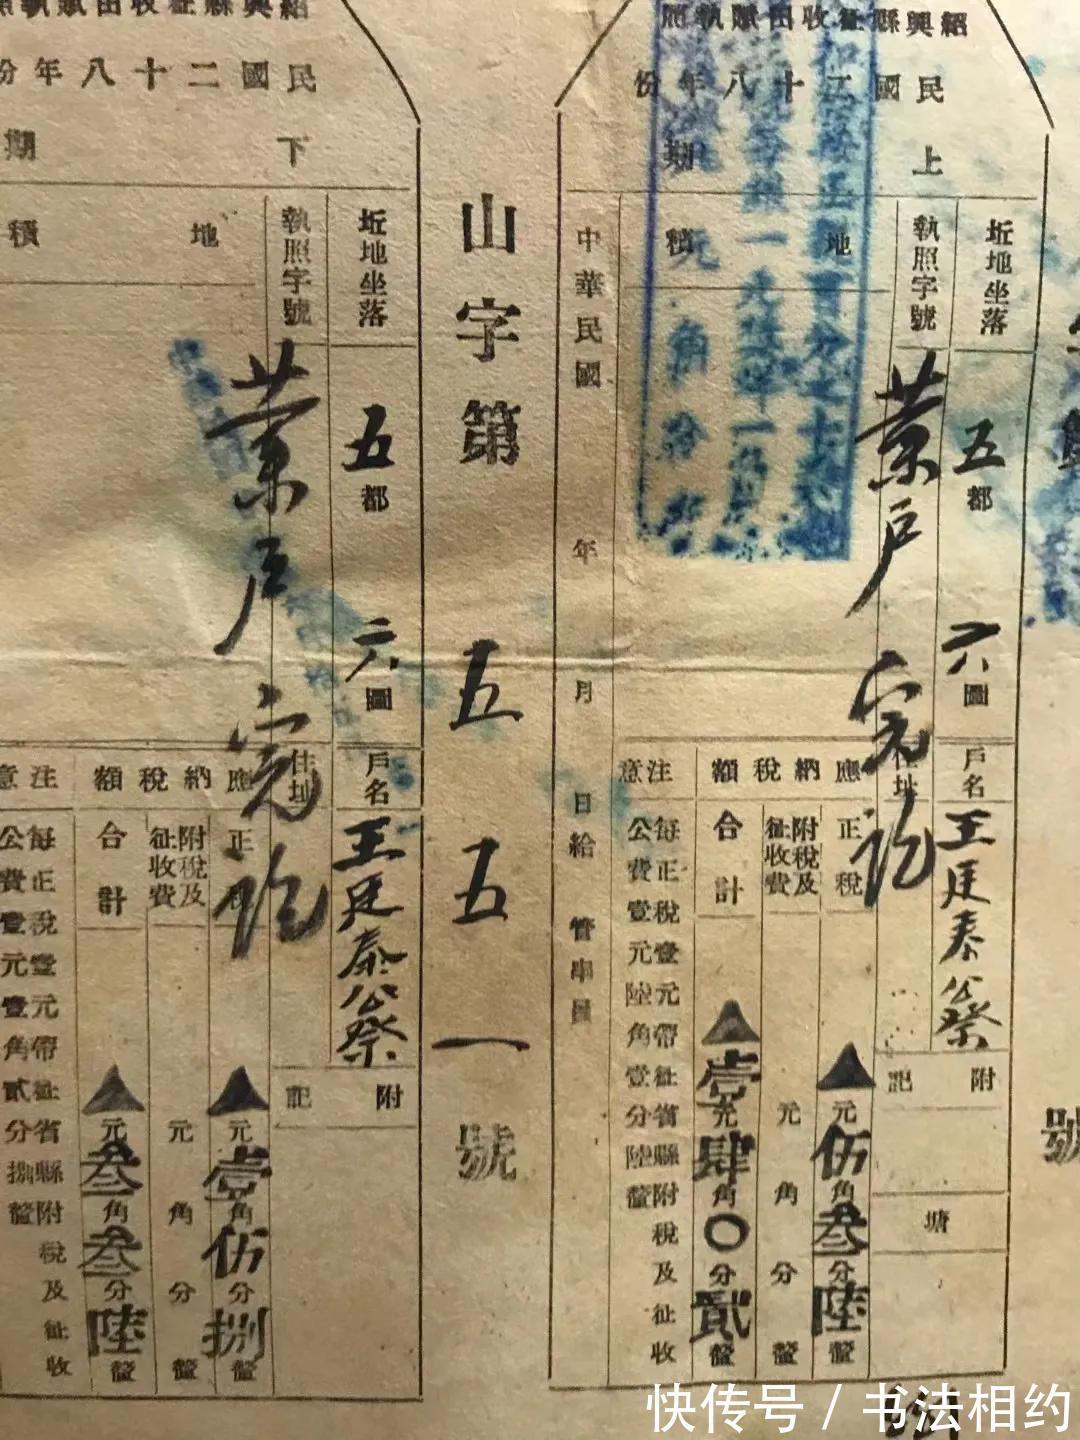 紹興縣征收田賦執照
民國二十八年份
上期
坵地坐落
五都
六圖
戶名
王廷泰公祭
執照字號
地積
業戶完訖
住址
附記
塘
應納稅額
正稅
▲元伍角叁分陸釐
附稅及征收費
元角分釐
合計
▲壹元肆角〇分貳釐
注意
每正稅壹元帶征省縣附稅及征收
公費壹元陸角壹分陸釐
中華民國 年 月 日給 管串員
山字第五五一號
紹興縣征收田賦執照
民國二十八年份
下期
坵地坐落
五都
六圖
戶名
王廷泰公祭
執照字號
地積
業戶完訖
住址
附記
應納稅額
正稅
▲元壹角伍分捌釐
附稅及征收費
元角分釐
合計
▲元叁角叁分陸釐
注意
每正稅壹元帶征省縣附稅及征收
公費壹元壹角貳分捌釐
號
快传号／书法相约